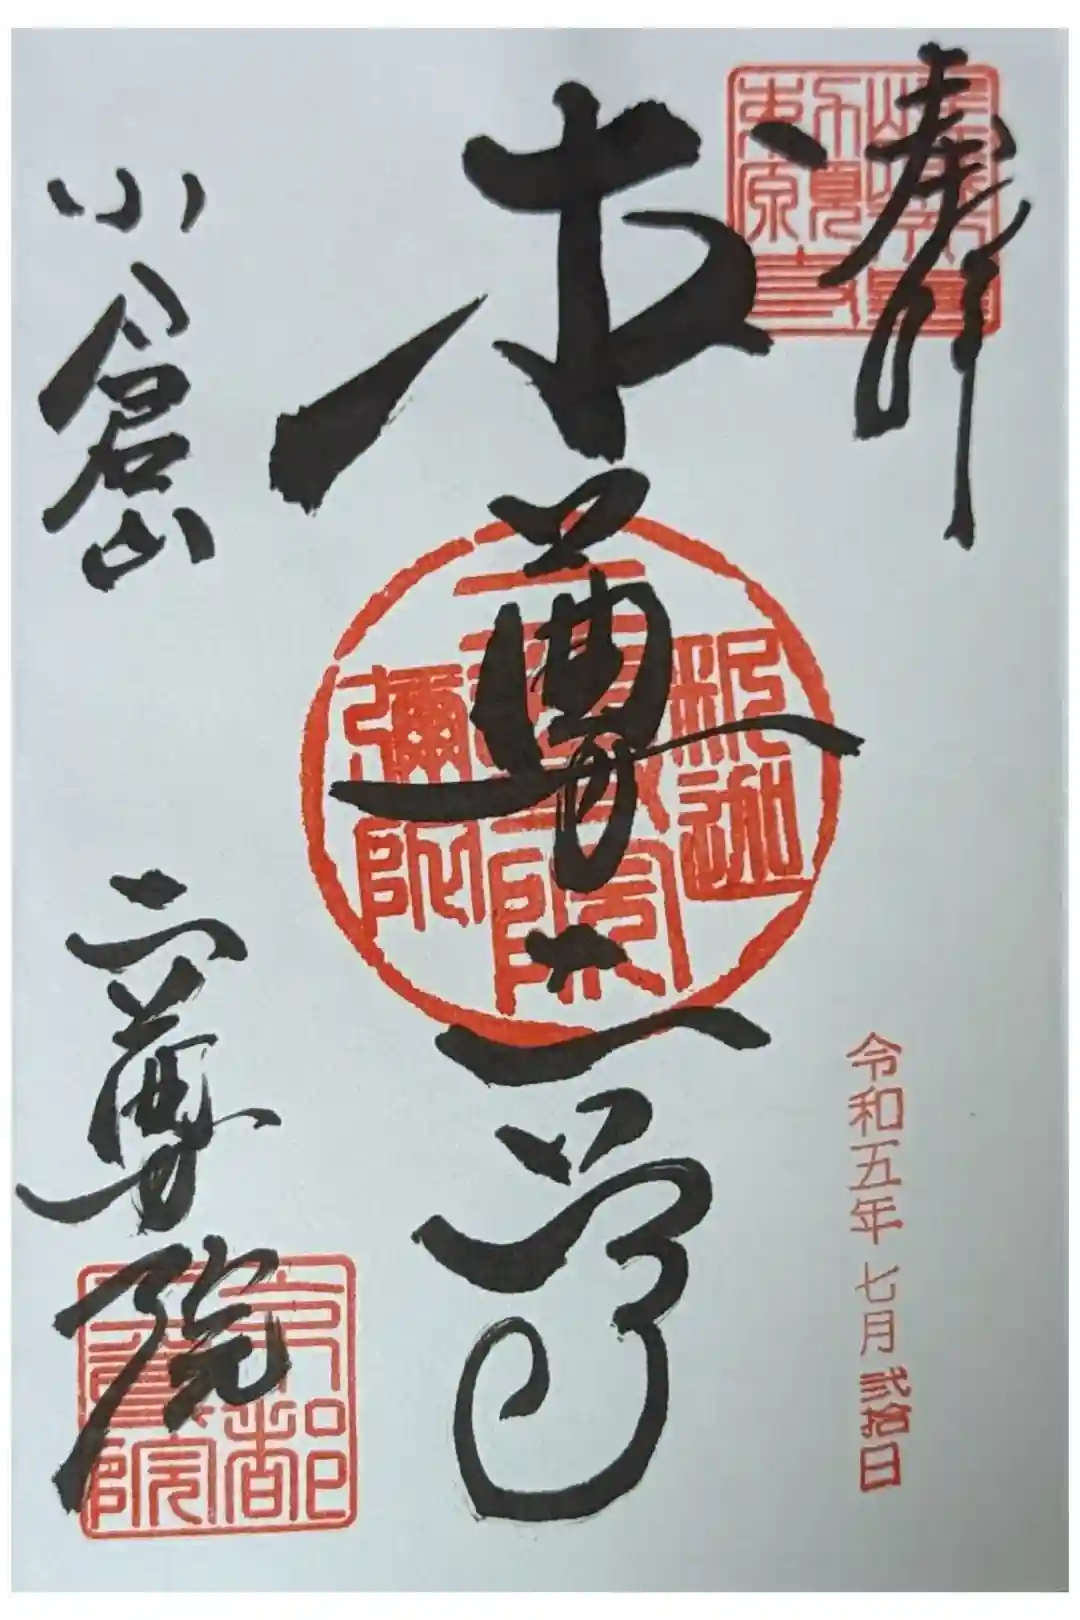 奉拝
令和五年 七月 弐拾日
本尊二尊
釈迦
二尊院
彌陀
小倉山
二尊院
京都
二尊院